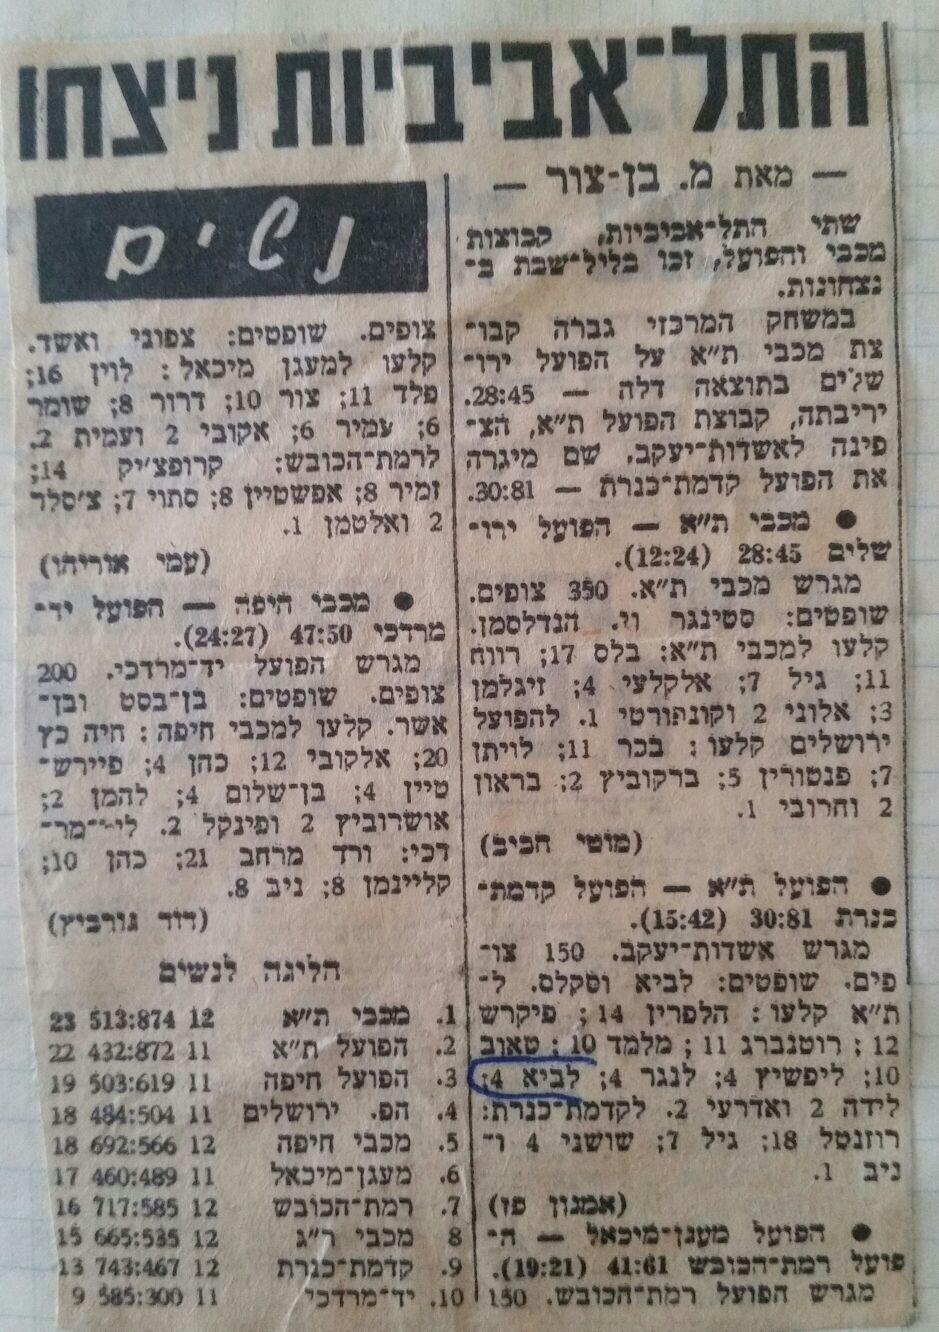 התל־אביביות ניצחו
— מאת מ. בן-צור —
שתי התל־אביביות, קבוצות
מכבי והפועל, זכו בליל־שבת ב־
נצחונות.
במשחק המרכזי גברה קבו־
צת מכבי ת״א על הפועל ירו־
שלים בתוצאה דלה — 28:45.
יריבתה, קבוצת הפועל ת״א, הצ־
פינה לאשדות־יעקב, שם מיגרה
את הפועל קדמת־כנרת — 30:81.
● מכבי ת״א — הפועל ירו־
שלים 28:45 (12:24).
מגרש מכבי ת״א. 350 צופים.
שופטים: סטינגר וי. הנדלסמן.
קלעו למכבי ת״א: בלס 17; רווח
11; גיל 7; אלקלעי 4; זיגלמן
3; אלוני 2 וקונפורטי 1. להפועל
ירושלים קלעו: בכר 11; לויתן
7; פנטורין 5; ברקוביץ 2; בראון
2 וחרובי 1.
(מוטי חביב)
● הפועל ת״א — הפועל קדמת־
כנרת 30:81 (15:42).
מגרש אשדות־יעקב. 150 צו־
פים. שופטים: לביא וסקלס. ל־
ת״א קלעו: הלפרין 14; פיקרש
12; רוטנברג 11; מלמד 10; טאוב
10; ליפשיץ 4; לנגר 4; לביא 4;
לידה 2 ואדרעי 2. לקדמת־כנרת:
רוזנטל 18; גיל 7; שושני 4 ו־
ניב 1.
(אמנון פז)
● הפועל מעגן־מיכאל — ה־
פועל רמת־הכובש 41:61 (19:21).
מגרש הפועל רמת־הכובש. 150
נשים
צופים. שופטים: צפוני ואשד.
קלעו למעגן מיכאל: לוין 16;
פלד 11; צור 10; דרור 8; שומר
6; עמיר 6; אקובי 2 ועמית 2.
לרמת־הכובש: קרופצ׳יק 14;
זמיר 8; אפשטיין 8; סתוי 7; צ׳סלר
2 ואלטמן 1.
(עמי אוריהו)
● מכבי חיפה — הפועל יד־
מרדכי 47:50 (24:27).
מגרש הפועל יד־מרדכי. 200
צופים. שופטים: בן־בסט ובן־
אשר. קלעו למכבי חיפה: חיה כץ
20; אלקובי 12; כהן 4; פיירש־
טיין 4; בן־שלום 4; להמן 2;
אושרוביץ 2 ופינקל 2. ליד־מר־
דכי: ורד מרחב 21; כהן 10;
קליינמן 8; ניב 8.
(דוד גורביץ)
הליגה לנשים
1. מכבי ת״א 12 513:874 23
2. הפועל ת״א 11 432:872 22
3. הפועל חיפה 11 503:619 19
4. הפ. ירושלים 11 484:504 18
5. מכבי חיפה 12 692:566 18
6. מעגן־מיכאל 11 460:489 17
7. רמת־הכובש 12 717:585 16
8 מכבי ר״ג 12 665:535 15
9. קדמת־כנרת 12 743:467 13
10. יד־מרדכי 11 585:300 9